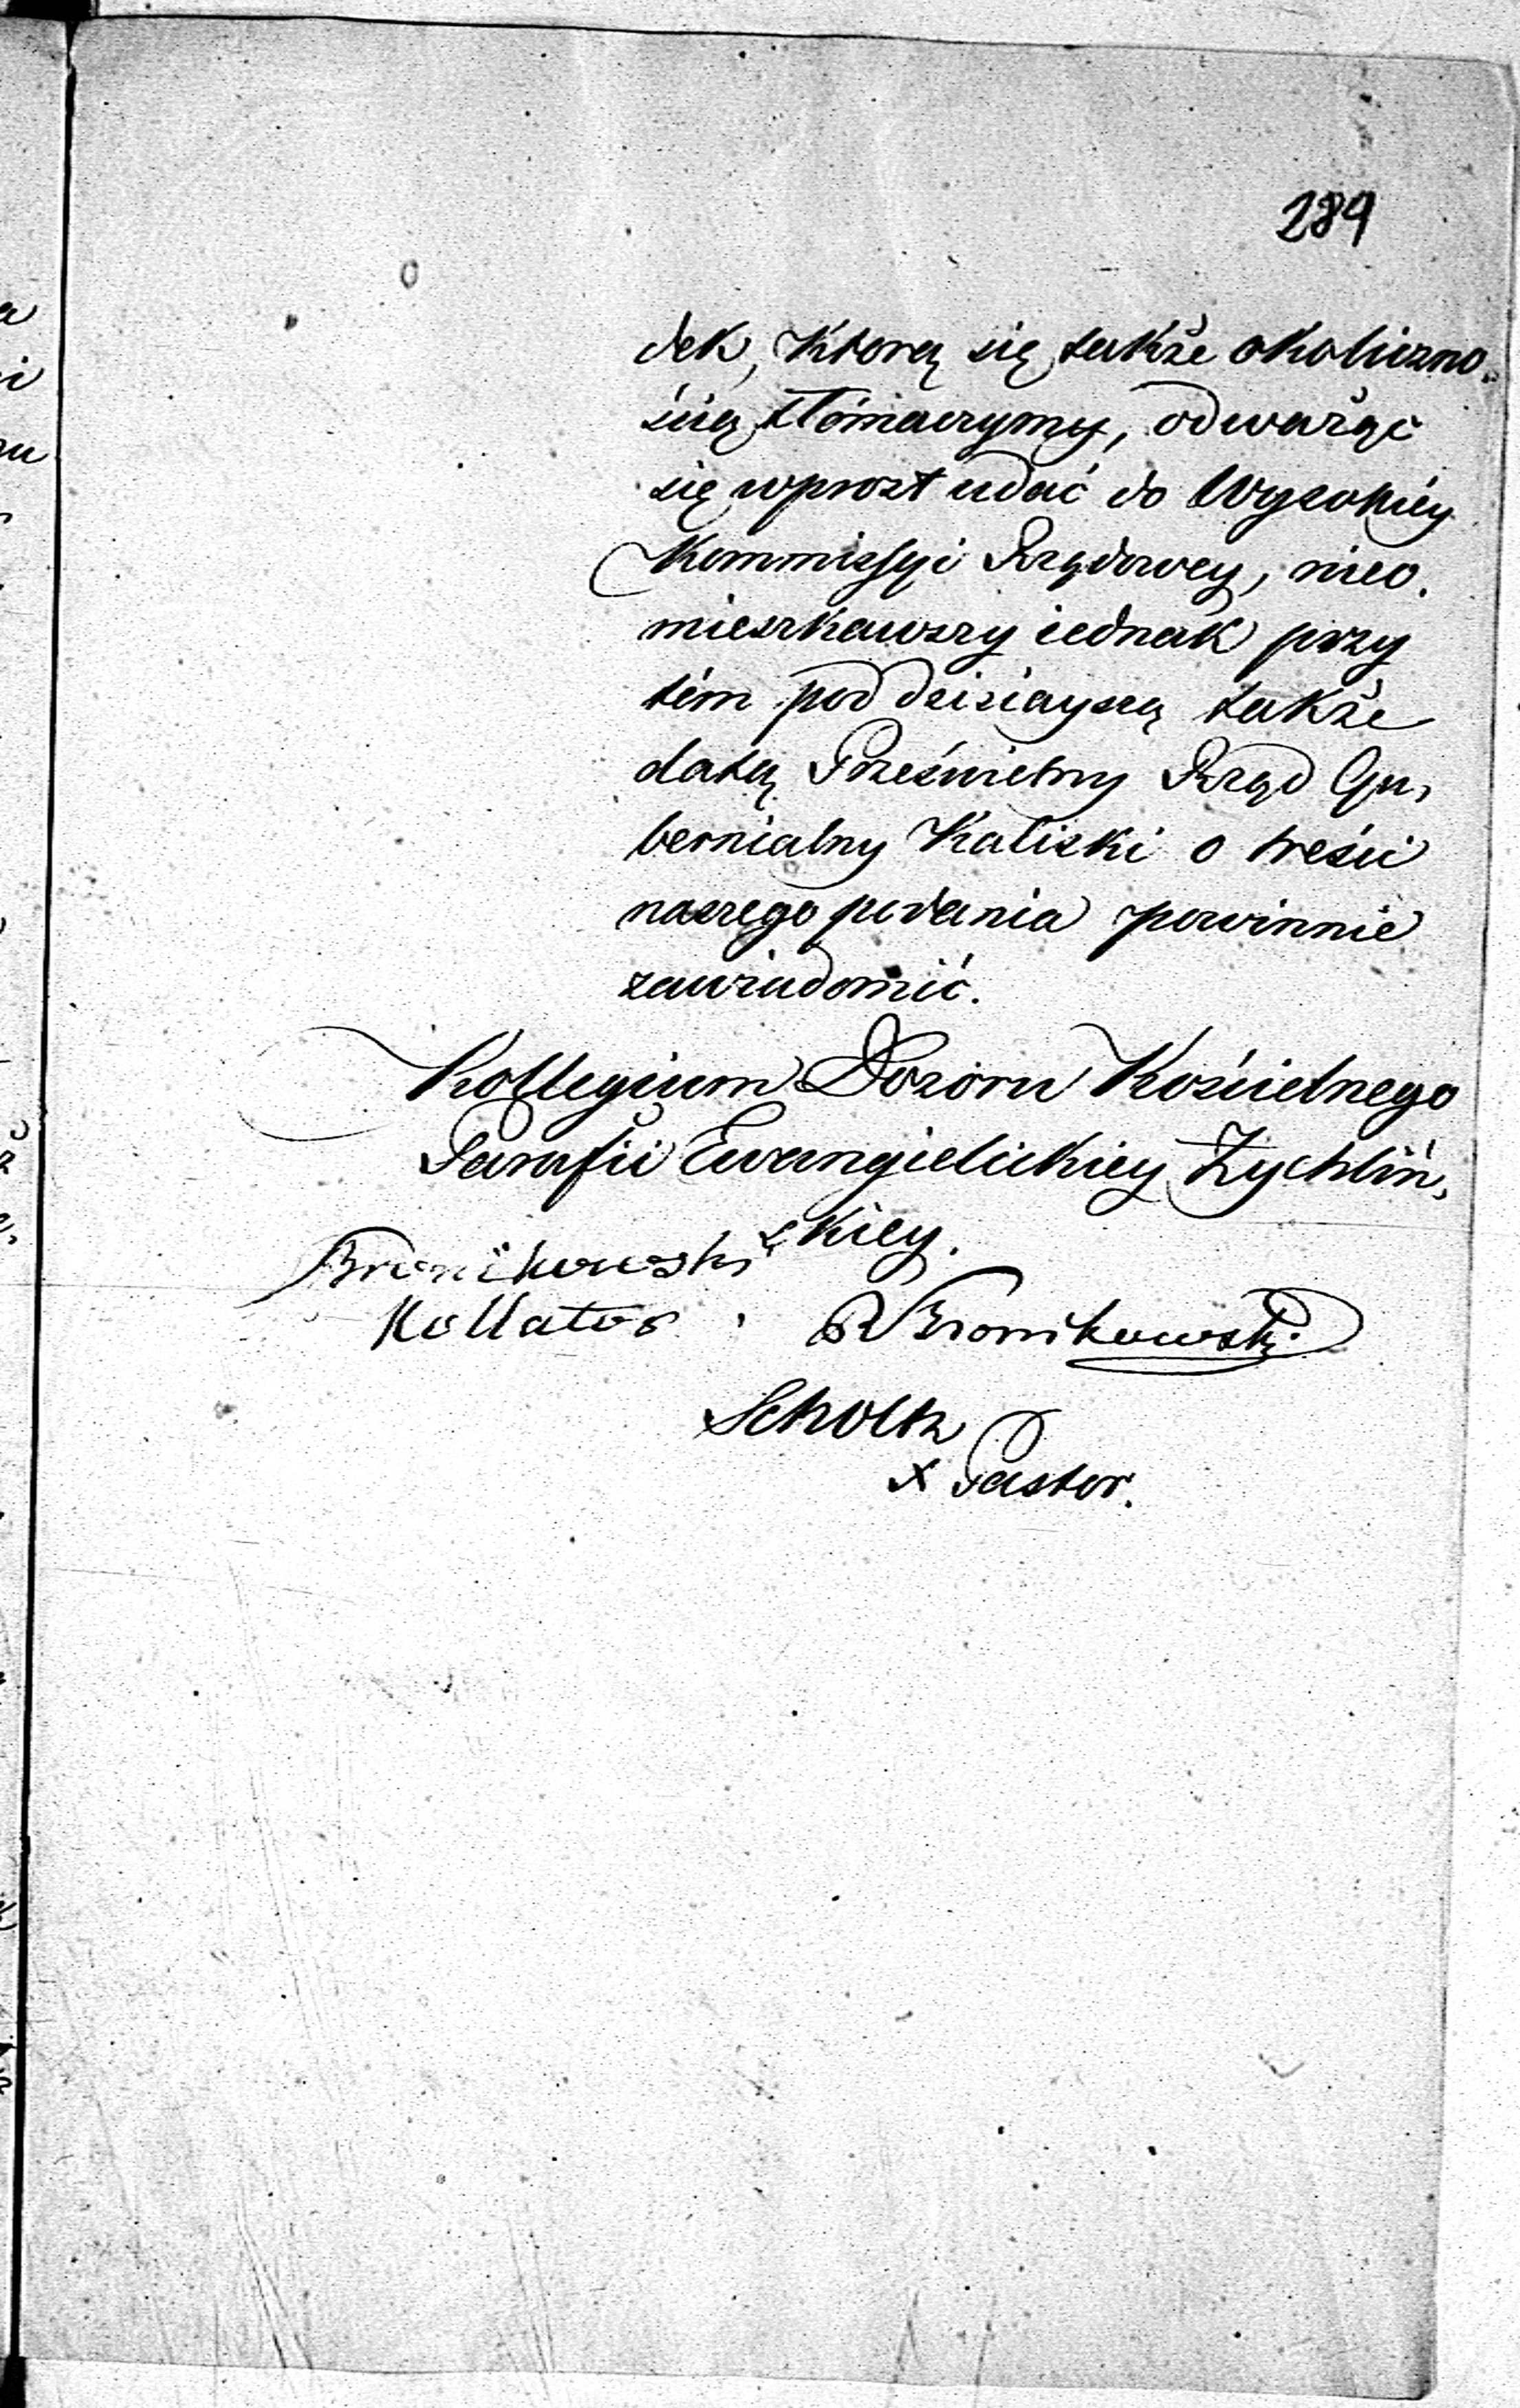 289
dek, którą się także okoliczno-
ścią tłómaczymy, odważąc
się wprost udać do Wysokiéy
Kommissyi Rządowey, nieo-
mieszkawszy iednak przy
tém pod dzisiayszą także
datą Prześwietny Rząd Gu-
bernialny Kaliski o treści
naszego podania powinnie
zawiadomić.
Kollegium Dozoru Kościelnego
Parafii Ewangielickiey Żychliń-
skiey.
Bronikowski
Kollator. R Bronikowski
Scholtz
X Pastor.